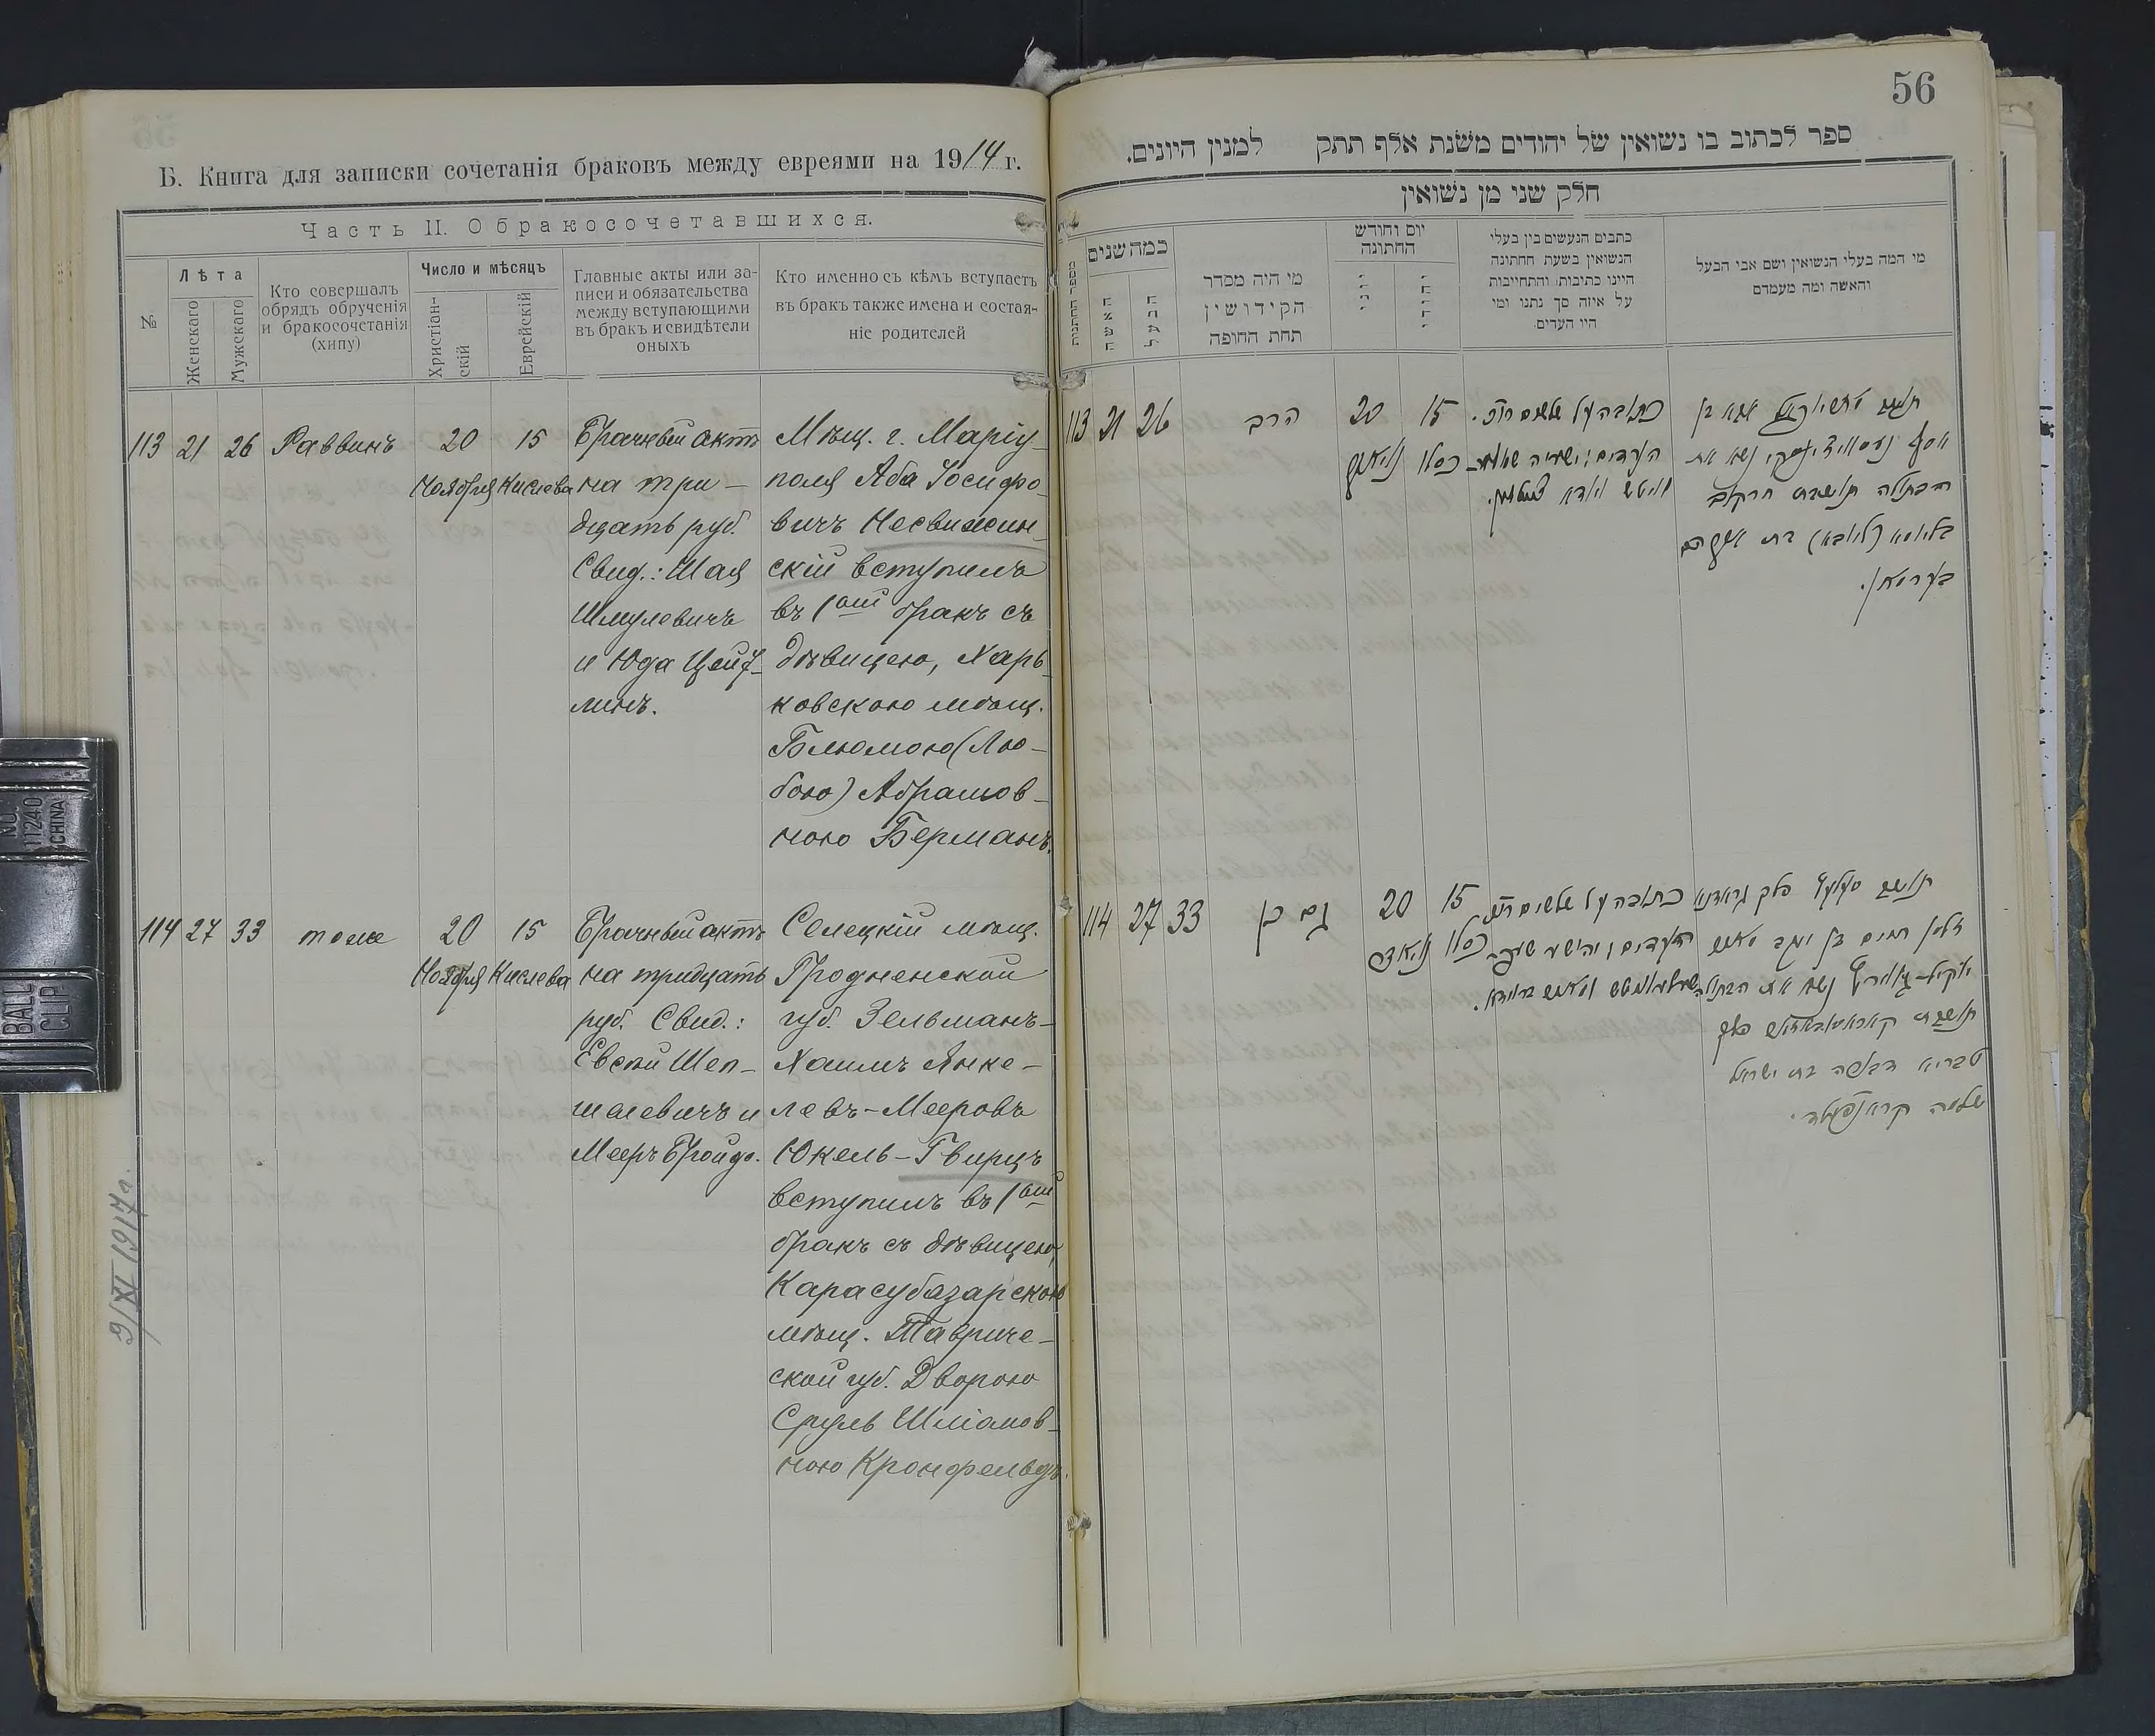 56
Б. Книга для записки сочетанія браковъ между евреями на 1914 г.
Часть II. О бракосочетавшихся.
№
Лѣта
Женскаго
Мужескаго
Кто совершалъ
обрядъ обрученія
и бракосочетанія
(хипу)
Число и мѣсяцъ
Христіан-
скій
Еврейскій
Главные акты или за-
писи и обязательства
между вступающими
въ бракъ и свидѣтели
оныхъ
Кто именно съ кѣмъ вступаетъ
въ бракъ также имена и состоя-
ніе родителей
113 21 26 Раввинъ
20 15
Ноября Кислева
Брачный актъ
на три-
дцать руб.
Свид.: Шая
Шмулевичъ
и Юда Цейт-
линъ.
Мѣщ. г. Маріу-
поля Аба Іосифо-
вичъ Несвижин-
скій вступилъ
въ 1ый бракъ съ
дѣвицею, Харь-
ковскою мѣщ.
Блюмою (Лю-
бою) Абрамов-
ною Берманъ.
114 27 33 тоже
20 15
Ноября Кислева
Брачный актъ
на тридцать
руб. Свид.:
Евсей Шеп-
шелевичъ и
Мееръ Бройдо.
Селецкій мѣщ.
Гродненской
губ. Зельманъ-
Хаимъ Янке-
левъ-Мееровъ
Юкель-Гвирцъ
вступилъ въ 1ый
бракъ съ дѣвицею,
Карасубазарскою
мѣщ. Тавриче-
ской губ. Дворою
Сруль Шліомов-
ною Кронфельдъ.
9/XI 1917 г.
ספר לכתוב בו נשואין של יהודים משנת אלף תתק למנין היונים.
חלק שני מן נשואין
מספר החתנות
כמה שנים
האשה
הבעל
מי היה מסדר
הקידושין
תחת החופה
יום וחודש
החתונה
יוני
יהודי
כתבים הנעשים בין בעלי
הנשואין בשעת חחתונה
היינו כתיבות והתחייבות
על איזה סך נתנו ומי
היו העדים
מי המה בעלי הנשואין ושם אבי הבעל
והאשה ומה מעמדם
113 21 26 הרב
20 15
כסלו
כתובה על שלשים רו״כ.
העדים: ישעיה
תושב אבא בן
יוסף נשא את
הבתולה תושבת חרקוב
בליומא (ליובא) בת אברהם
בערמאן.
114 27 33 גם כן
20 15
כסלו
כתובה על שלשים רו״כ
העדים:
תושב סעלעץ פלך גראדנא
זלמן חיים בן יעקב מאיר
נשא את הבתולה
תושבת קאראסובאזאר פלך
טבריא דבורה בת ישראל
שלמה קראנפעלד.
NO.
11240
CHINA
BALL
CLIP